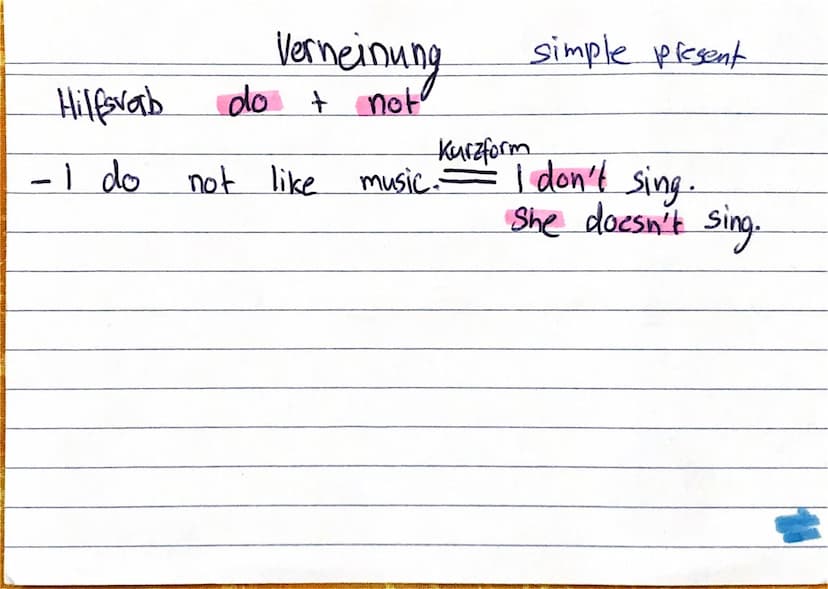 Verneinung simple present
Hilfsverb do + not
Kurzform
- I do not like music. = I don't sing.
She doesn't sing.